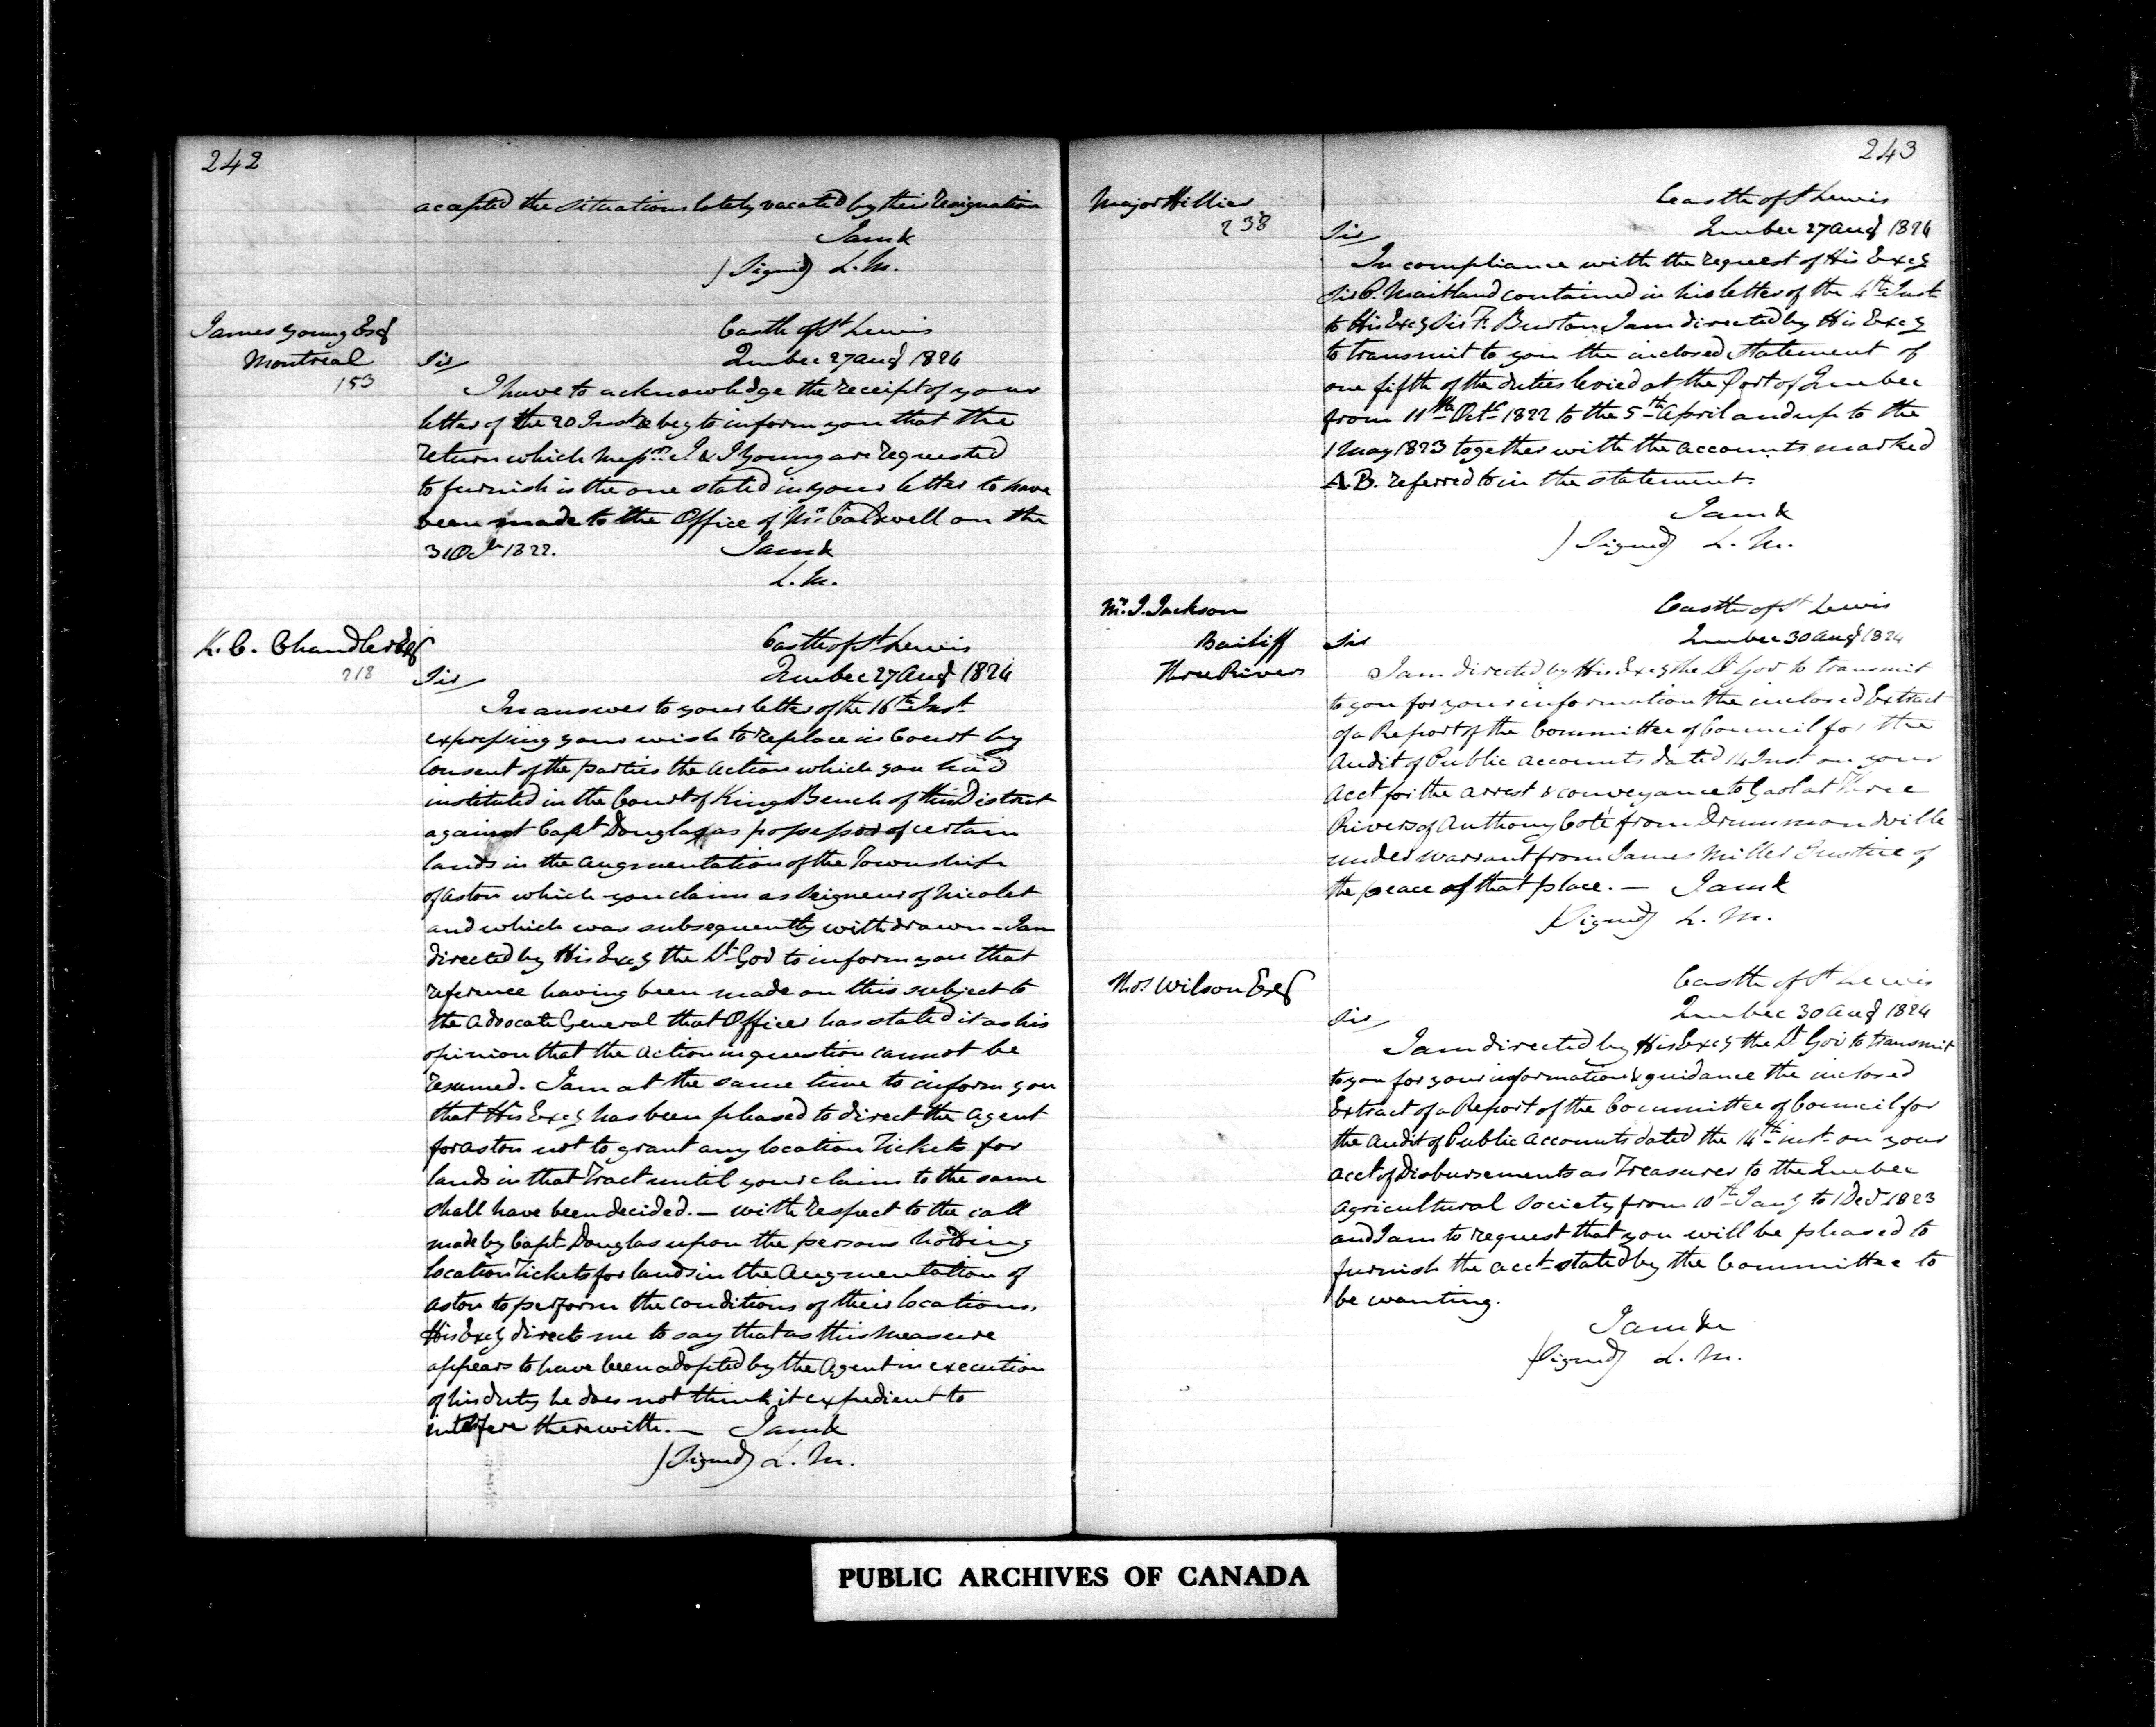 242
accepted the situations lately vacated by their resignation
I am &
(Signed) L. M.
James Young Esq
Montreal
153
Castle of St Lewis
Quebec 27 Aug 1824
Sir
I have to acknowledge the receipt of your
letter of the 20 Inst & beg to inform you that the
return which Messrs. J. & J Young are requested
to furnish is the one stated in your letter to have
been made to the Office of Mr. Caldwell on the
31 Oct 1822.
I am &
L. M.
K. C. Chandler Esq
218
Castle of St Lewis
Quebec 27 Aug 1824
Sir
In answer to your letter of the 16th Inst.
expressing your wish to replace in Court by
consent of the parties the action which you had
instituted in the Court of Kings Bench of this District
against Capt Douglas as possessor of certain
lands in the Augmentation of the Township
of Aston which you claim as Seigneur of Nicolet
and which was subsequently withdrawn - I am
directed by His Excy the Lt Gov to inform you that
reference having been made on this subject to
the Advocate General that Officer has stated it as his
opinion that the action in question cannot be
resumed. I am at the same time to inform you
that His Excy has been pleased to direct the Agent
for Aston not to grant any location Tickets for
lands in that Tract until your claim to the same
shall have been decided. — with respect to the call
made by Capt Douglas upon the persons holding
location Tickets for lands in the Augmentation of
Aston to perform the conditions of their locations,
His Excy directs me to say that as this measure
appears to have been adopted by the Agent in execution
of his duty he does not think it expedient to
interfere therewith. — I am &
(Signed) L. M.
243
Major Hillier
238
Castle of St Lewis
Quebec 27 Aug 1824
Sir
In compliance with the request of His Excy
Sir P. Maitland contained in his letter of the 4th Inst
to His Excy Sir F. Burton I am directed by His Excy
to transmit to you the inclosed Statement of
one fifth of the duties levied at the Port of Quebec
from 11th Octr 1822 to the 5th April and up to the
1 May 1823 together with the accounts marked
A.B. referred to in the statement.
I am &
(Signed) L. M.
Mr. J. Jackson
Bailiff
Three Rivers
Castle of St Lewis
Quebec 30 Aug 1824
Sir
I am directed by His Excy the Lt Gov to transmit
to you for your information the inclosed Extract
of a Report of the Committee of Council for the
Audit of Public accounts dated 14 Inst on your
Acct for the arrest & conveyance to Gaol at Three
Rivers of Anthony Coté from Drummondville
under warrant from James Miller Justice of
the peace of that place. — I am &
(Signed) L. M.
Thos. Wilson Esq
Castle of St Lewis
Quebec 30 Aug 1824
Sir
I am directed by His Excy the Lt Gov to transmit
to you for your information & guidance the inclosed
Extract of a Report of the Committee of Council for
the Audit of Public Accounts dated the 14th inst. on your
acct of disbursements as Treasurer to the Quebec
Agricultural Society from 10th Jany to 1 Decr 1823
and I am to request that you will be pleased to
furnish the acct stated by the Committee to
be wanting.
I am &c
(Signed) L. M.
PUBLIC ARCHIVES OF CANADA